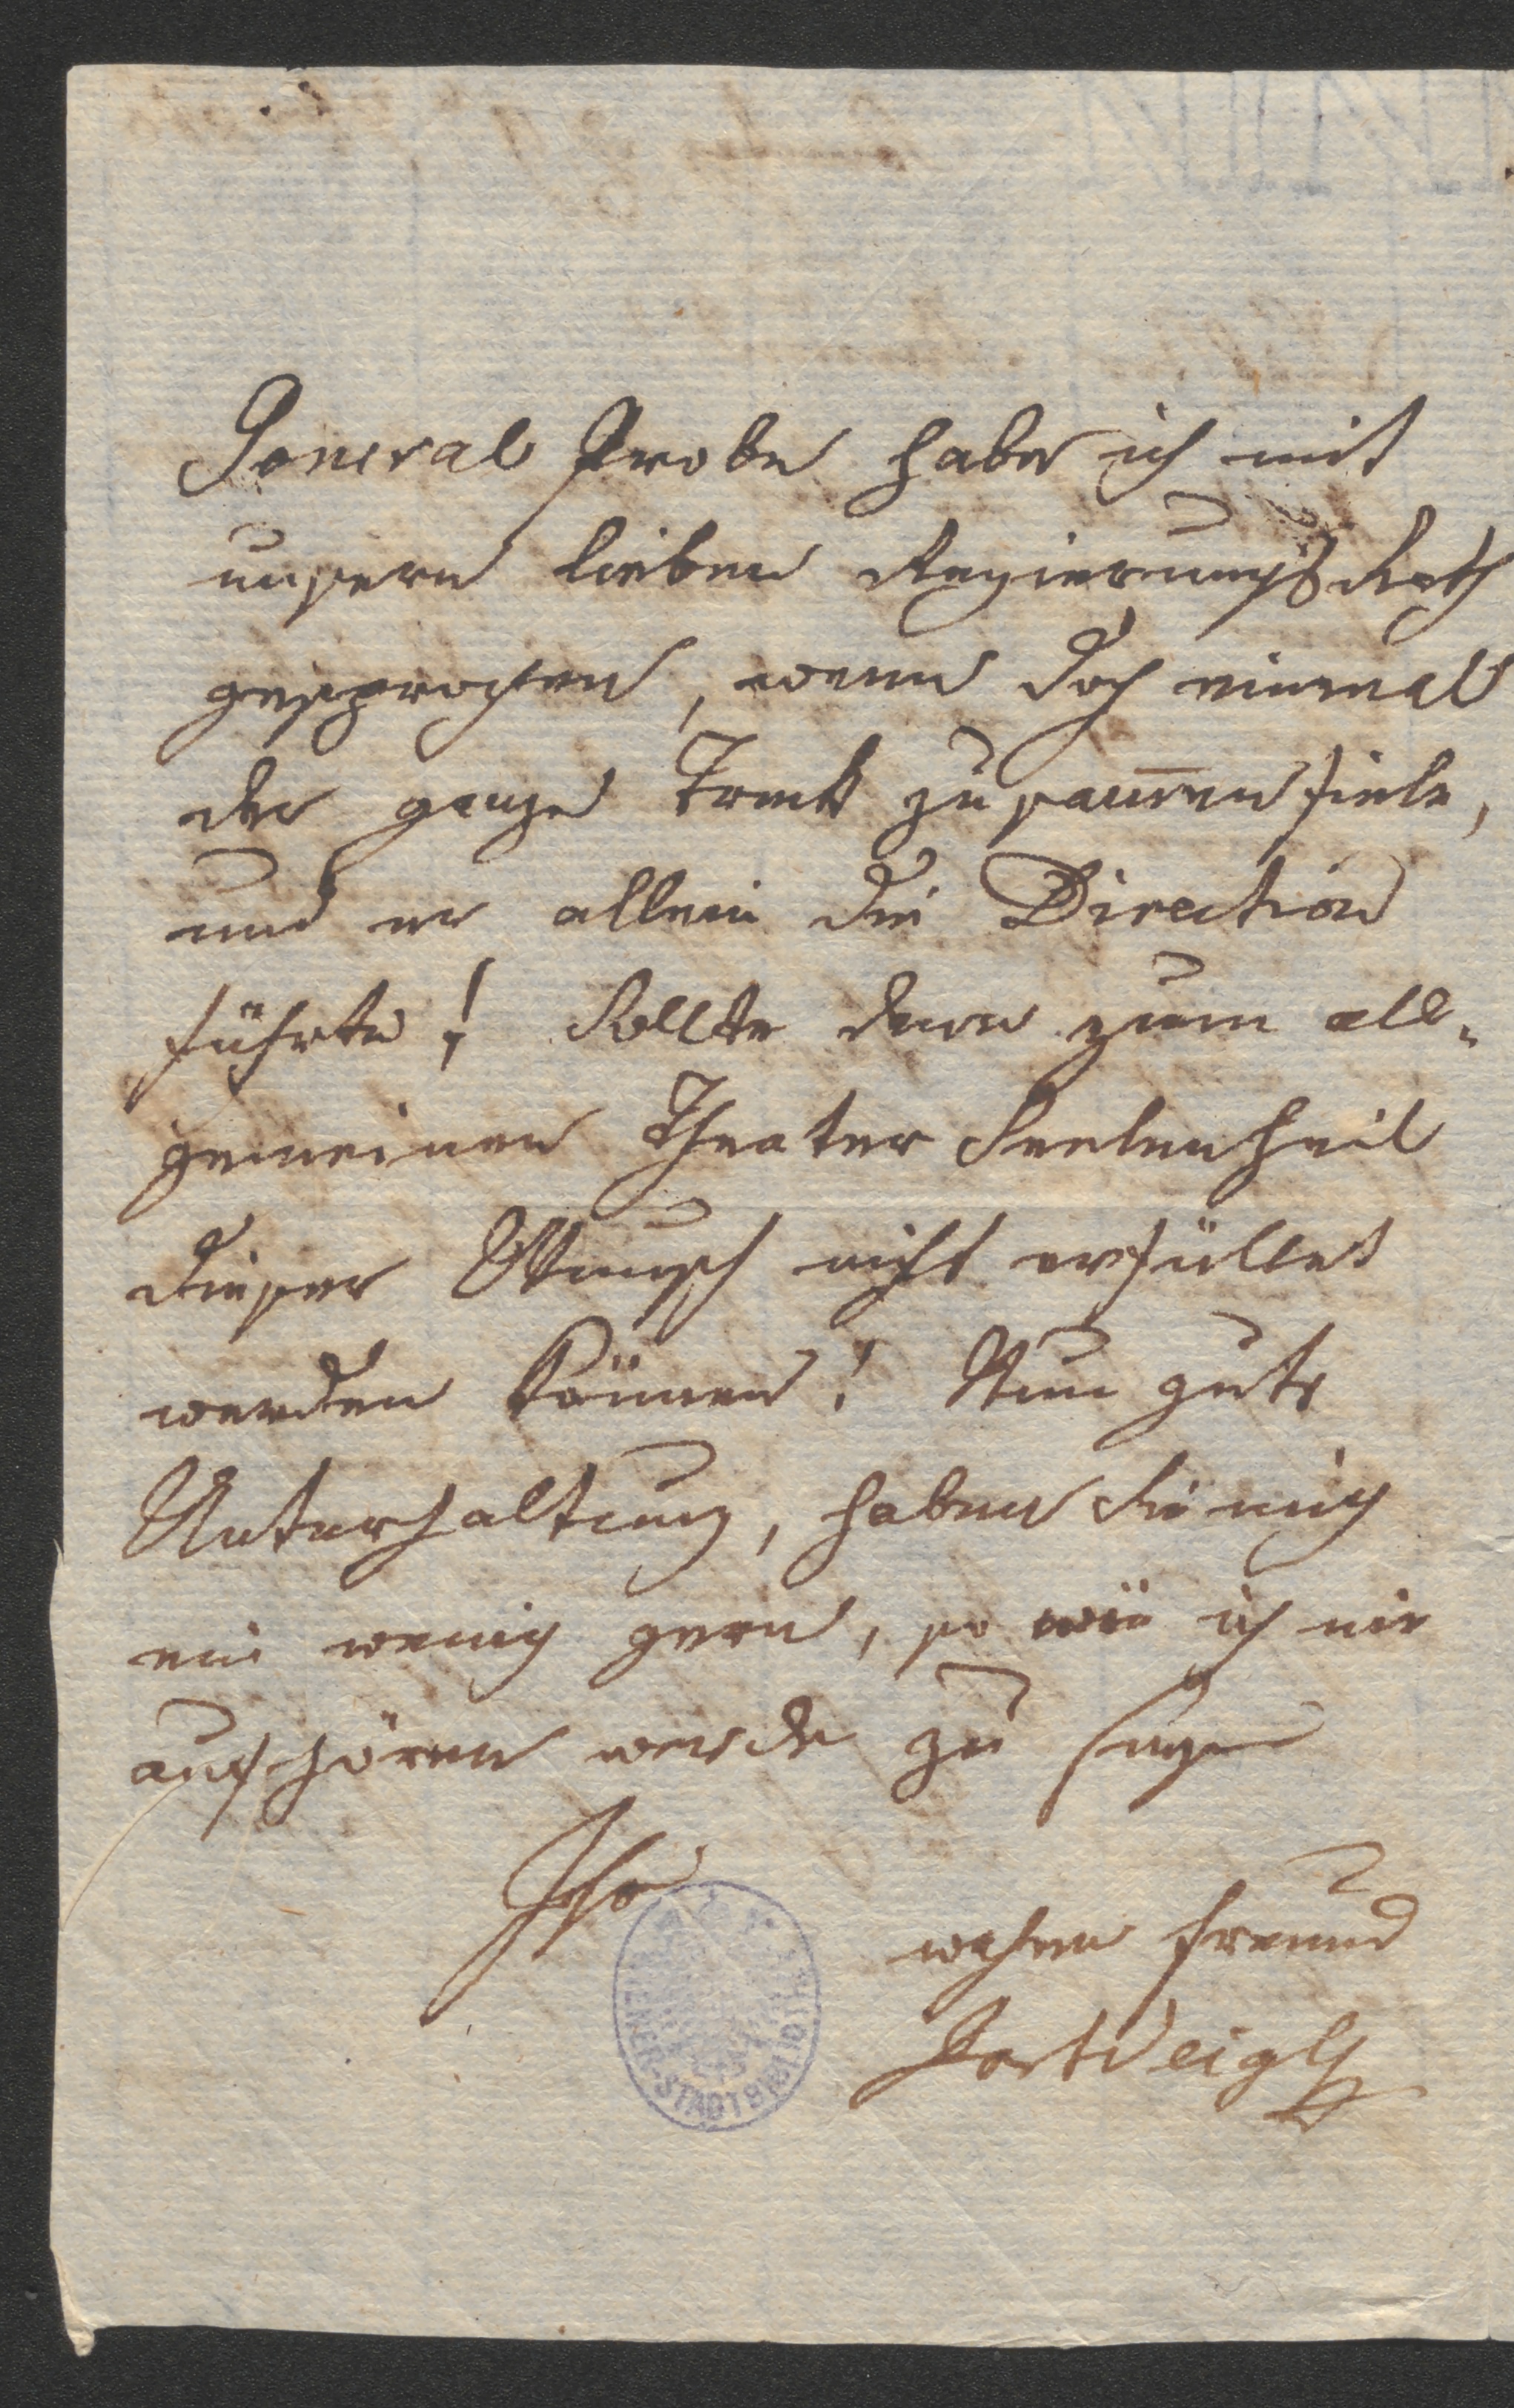 General Probe habe ich mit
unsern lieben Regierungs Rath
gesprochen, wenn doch einmal
der ganze Treck zusam̅en fiele,
und er allein die Direction
führte! Sollte denn zum all-
gemeinen Theater Seelenheil
dieser Wunsch nicht erfüllet
werden können! Nun gute
Unterhaltung, haben Sie mich
ein wenig gern, so wie ich nie
aufhören werde zu seyn
Ihr
wahrer Freund
Weigl
WIENER STADTBIBLIOTHEK